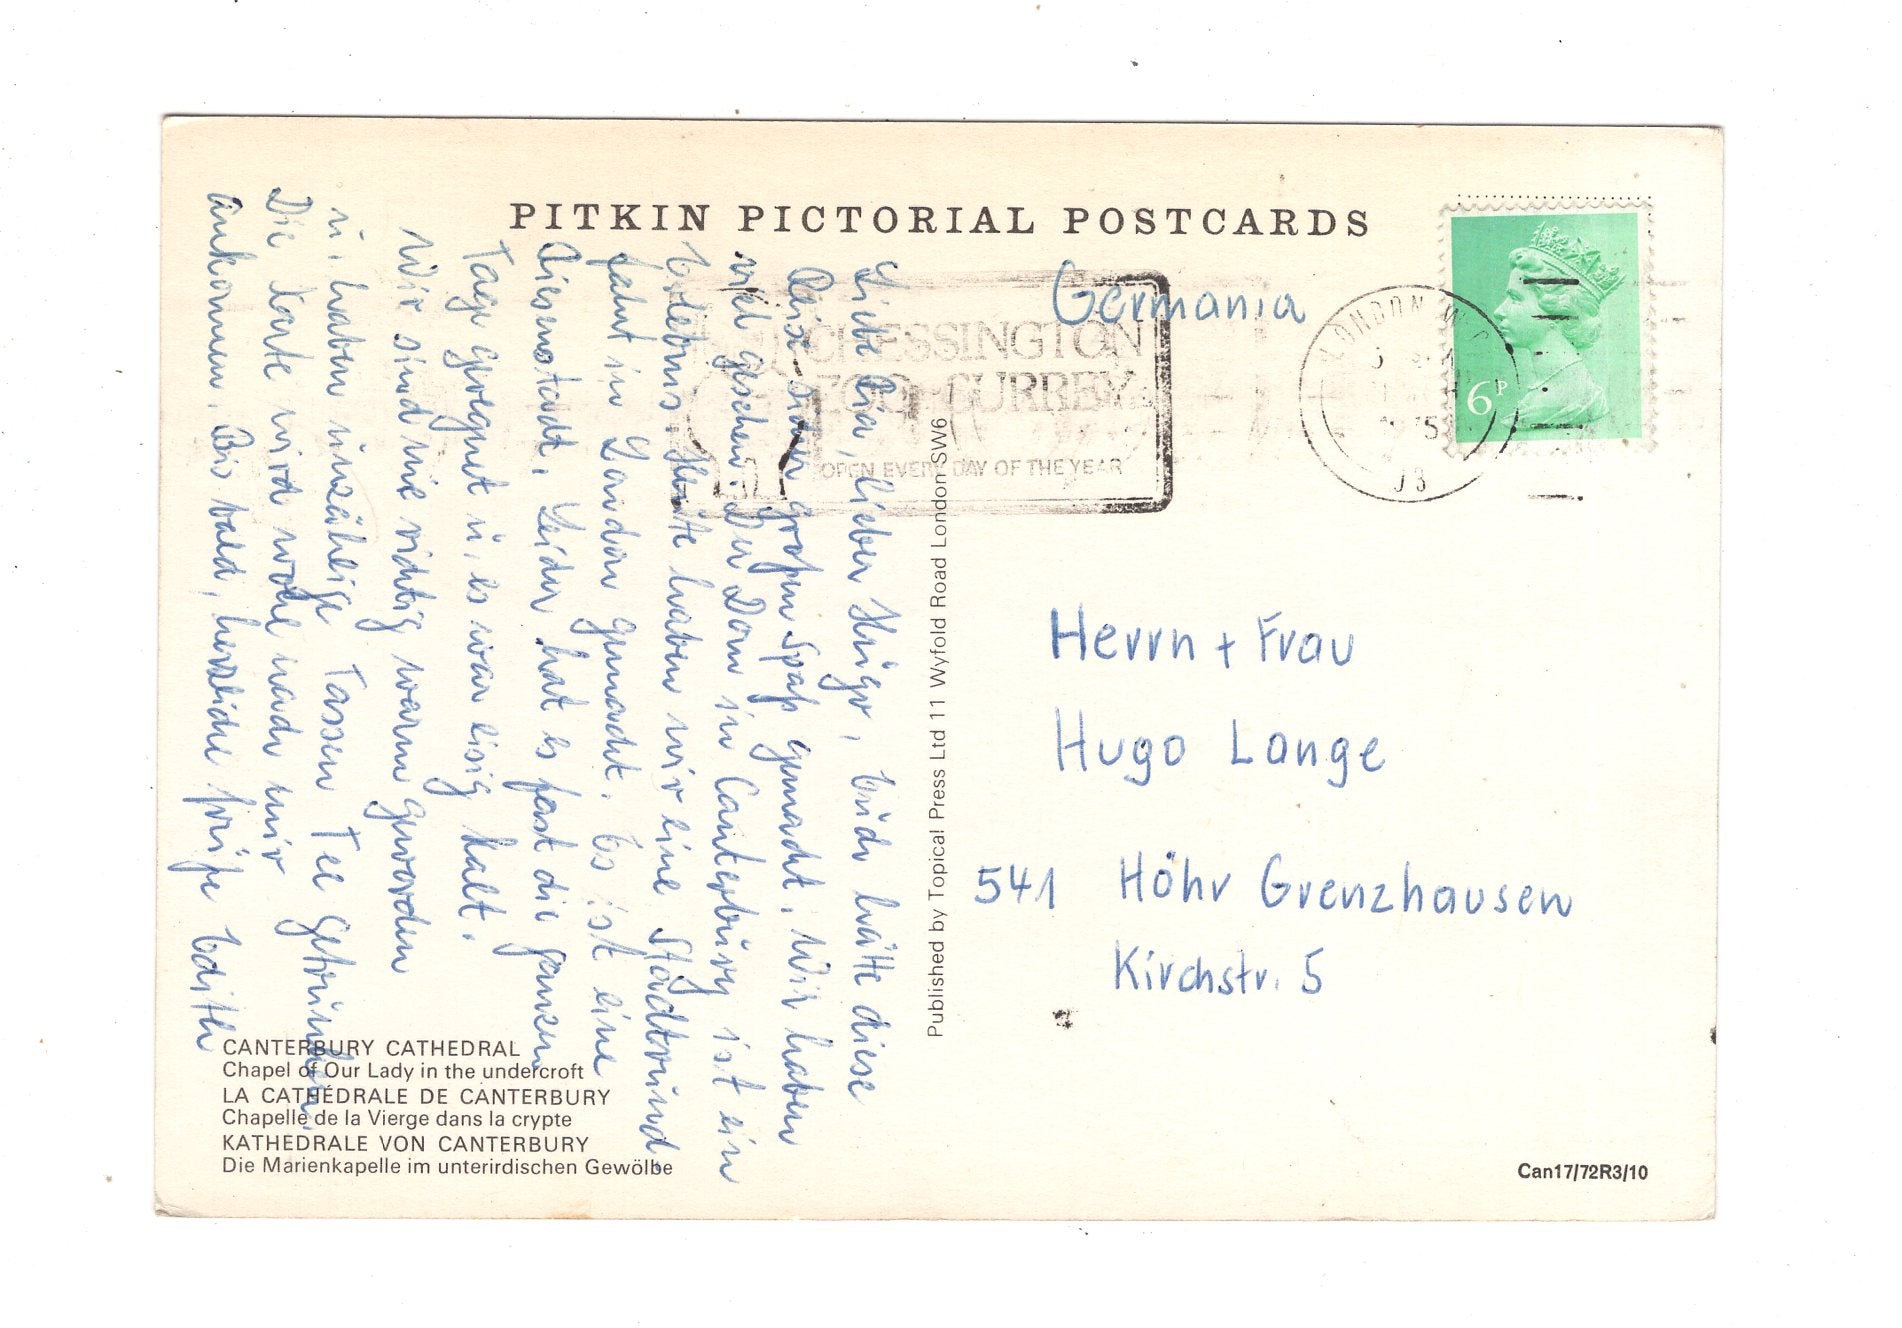 PITKIN PICTORIAL POSTCARDS
Germania
CHESSINGTON
ZOO SURREY
OPEN EVERY DAY OF THE YEAR
LONDON
6P
Liebe Lia, lieber Hugo, auch hätte diese
Reise sicher großen Spaß gemacht. Wir haben
viel gesehen. Der Dom in Canterbury ist ein
Erlebnis. Heute haben wir eine Stadtrund
fahrt in London gemacht. Es ist eine
Riesenstadt. Leider hat es fast die ganzen
Tage geregnet u. es war eisig kalt.
Wir sind nie richtig warm geworden
u. haben unzählige Tassen Tee getrunken.
Die Karte wird wohl nach mir
ankommen. Bis bald, herzliche Grüße Edith
Published by Topical Press Ltd 11 Wyfold Road London SW6
Herrn + Frau
Hugo Lange
541 Höhr Grenzhausen
Kirchstr. 5
CANTERBURY CATHEDRAL
Chapel of Our Lady in the undercroft
LA CATHÉDRALE DE CANTERBURY
Chapelle de la Vierge dans la crypte
KATHEDRALE VON CANTERBURY
Die Marienkapelle im unterirdischen Gewölbe
Can17/72R3/10